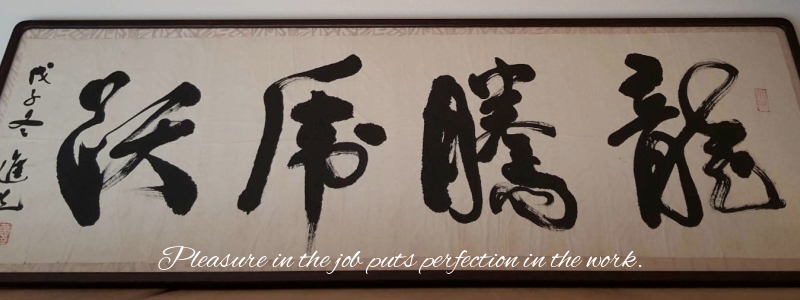 龍騰虎跃
戊子冬
Pleasure in the job puts perfection in the work.